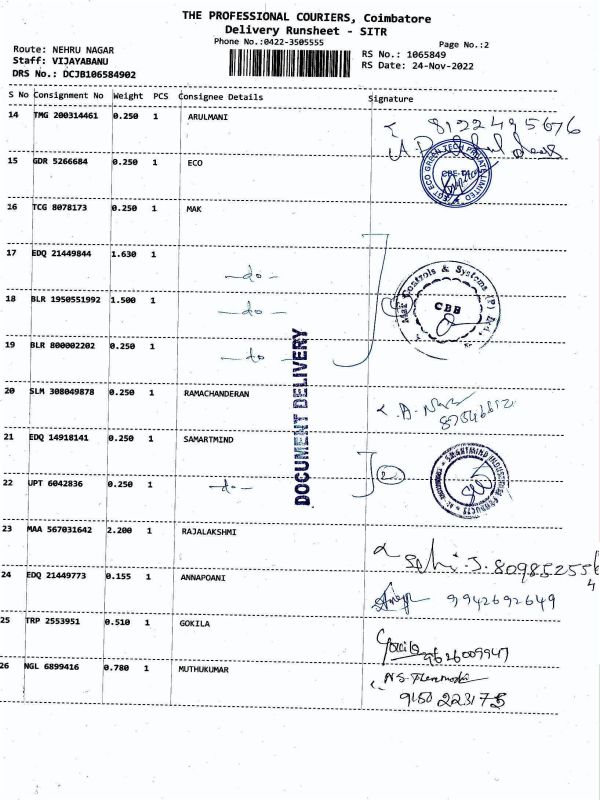 THE PROFESSIONAL COURIERS, Coimbatore
Delivery Runsheet - SITR
Phone No.:0422-3505555
Page No.:2
Route: NEHRU NAGAR
Staff: VIJAYABANU
DRS No.: DCJB106584902
RS No.: 1065849
RS Date: 24-Nov-2022
S No Consignment No Weight PCS Consignee Details Signature
14 TMG 200314461 0.250 1 ARULMANI
8122495676
15 GDR 5266684 0.250 1 ECO
EGT ECO GREEN TECH PRIVATE LIMITED
16 TCG 8078173 0.250 1 MAK
17 EDQ 21449844 1.630 1 -do-
18 BLR 1950551992 1.500 1 -do-
Mak Controls & Systems (P) Ltd.,
CBB
19 BLR 800002202 0.250 1 -do-
DOCUMENT DELIVERY
20 SLM 308049878 0.250 1 RAMACHANDERAN
21 EDQ 14918141 0.250 1 SAMARTMIND
22 UPT 6042836 0.250 1 -do- 2
SMARTMIND INDUCTION PRODUCTS
23 MAA 567031642 2.200 1 RAJALAKSHMI
J. 8098525564
24 EDQ 21449773 0.155 1 ANNAPOANI
9942692649
25 TRP 2553951 0.510 1 GOKILA
Gokila 9626009947
26 NGL 6899416 0.780 1 MUTHUKUMAR
9150223175